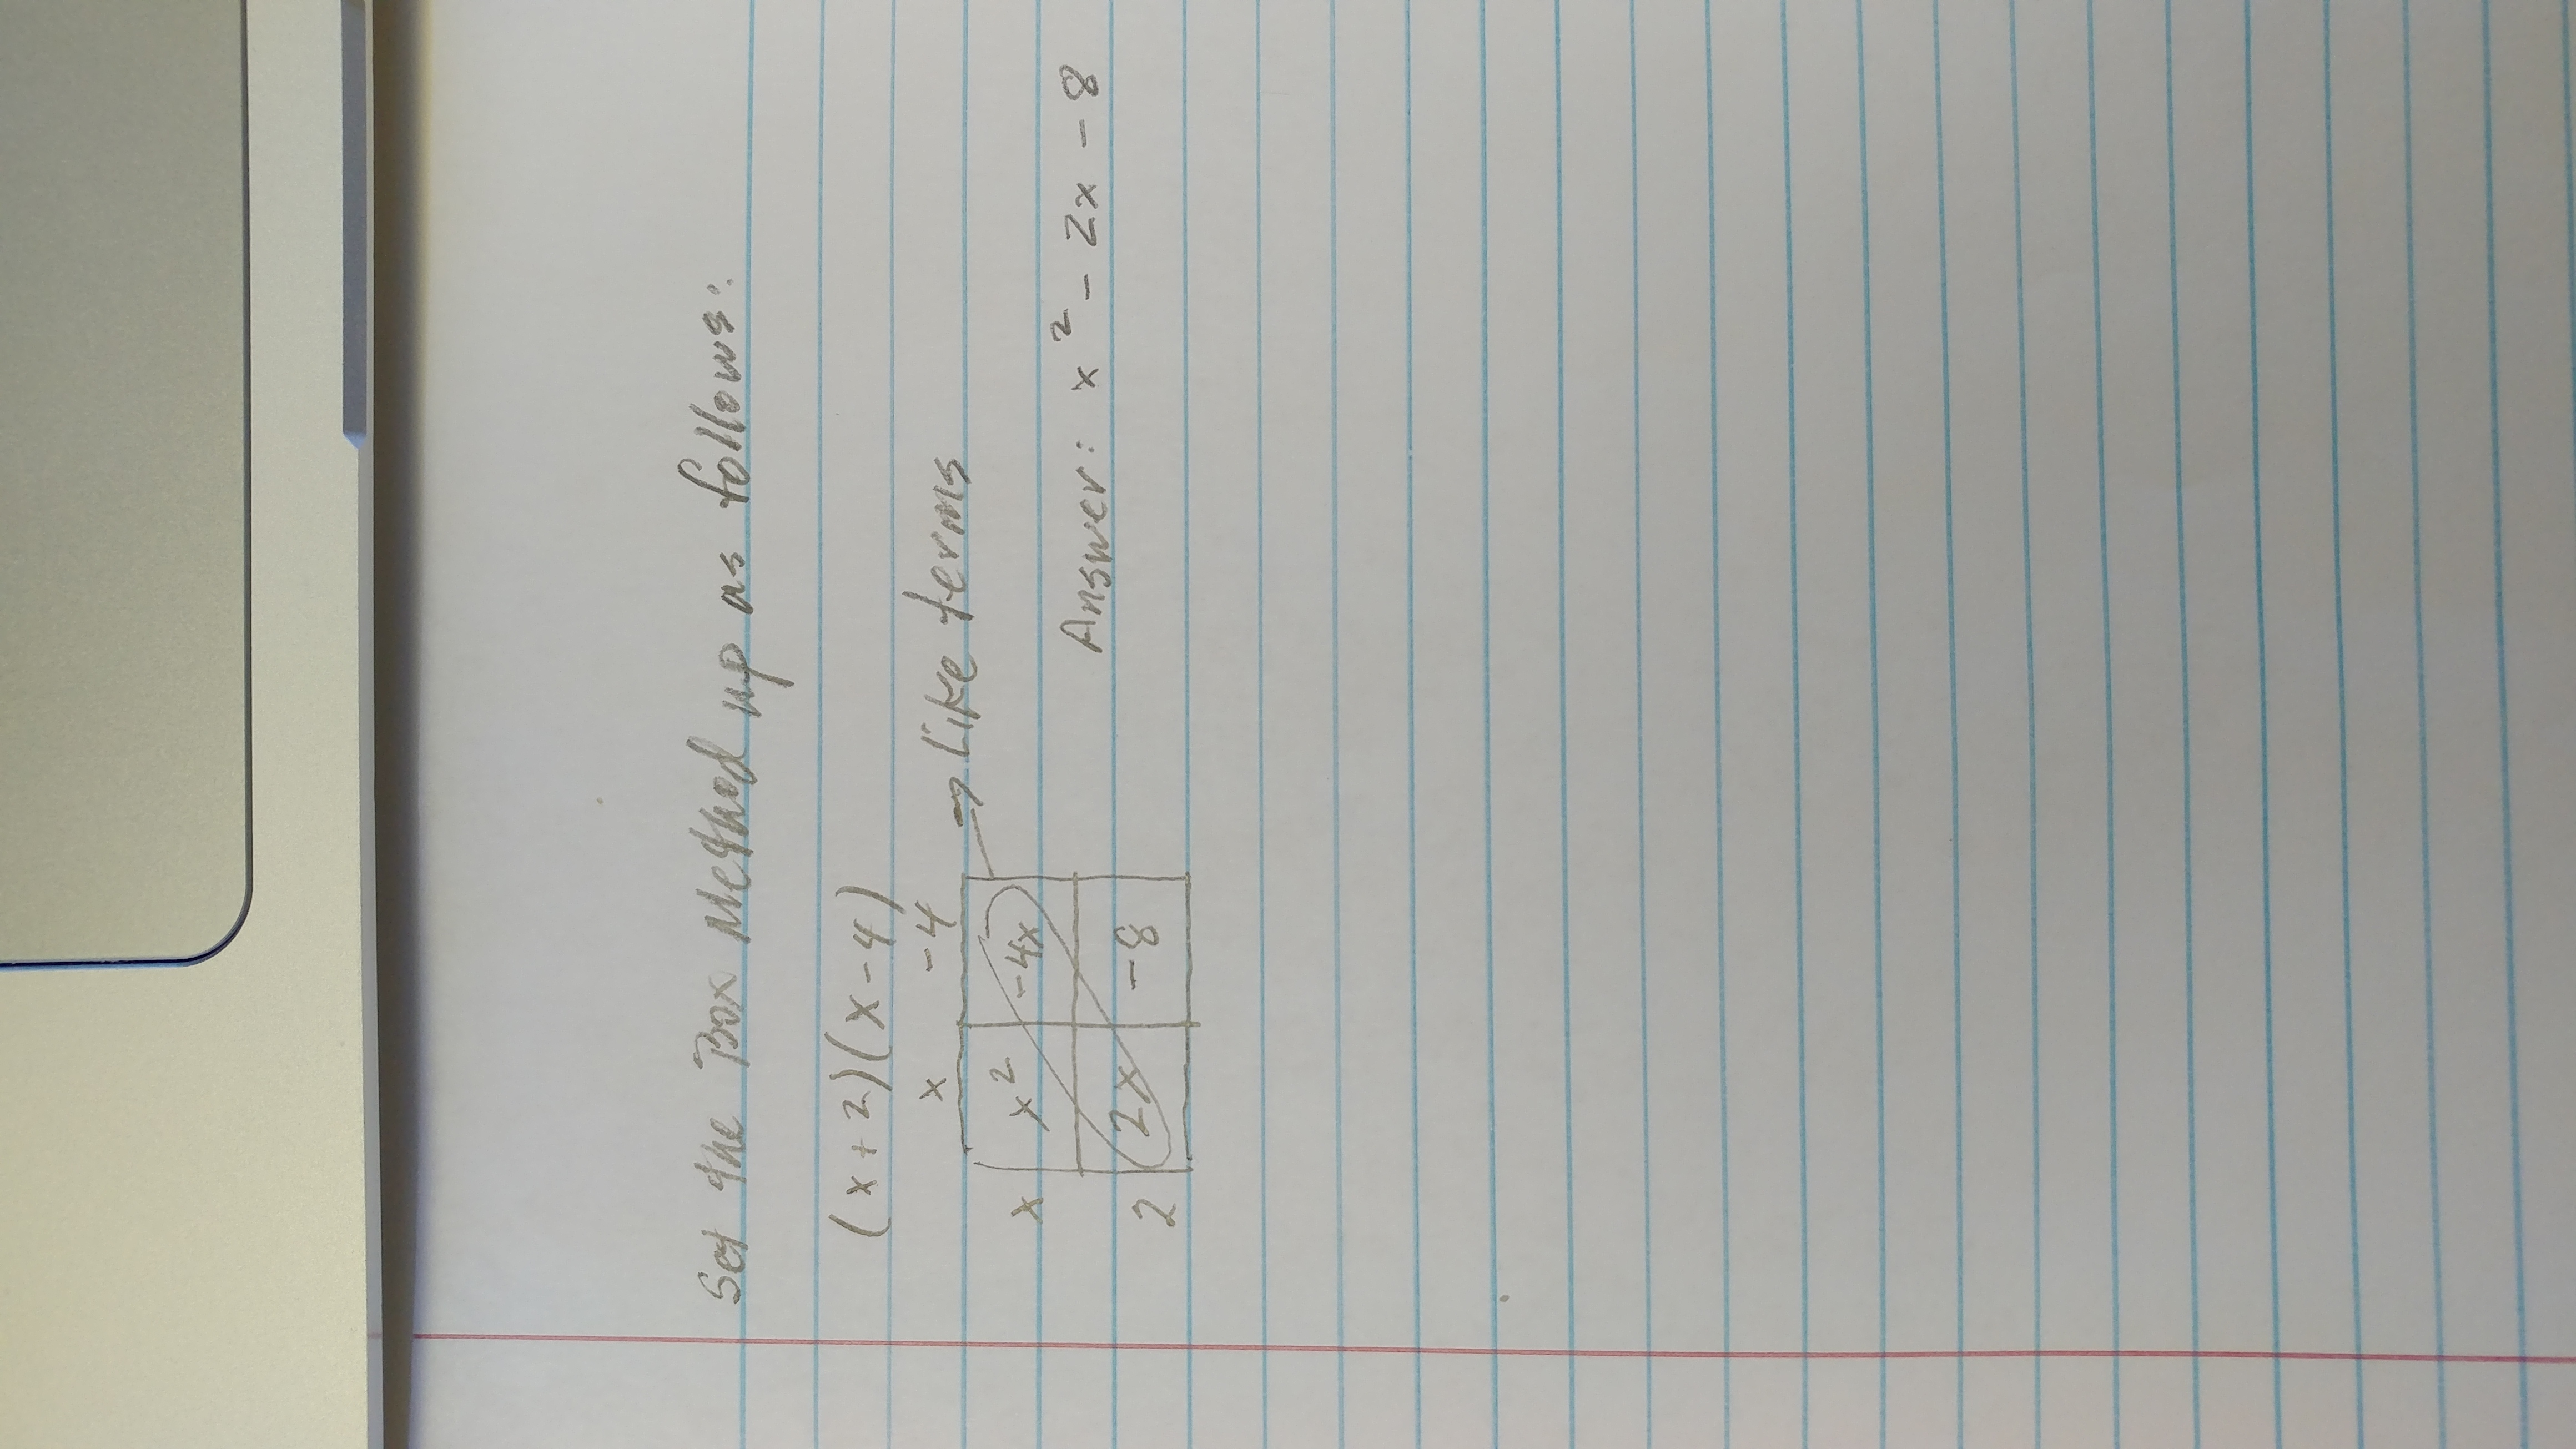 Set the Box Method up as follows:
(x+2)(x-4)
x -4
x x² -4x → Like terms
2 2x -8
Answer: x² - 2x - 8